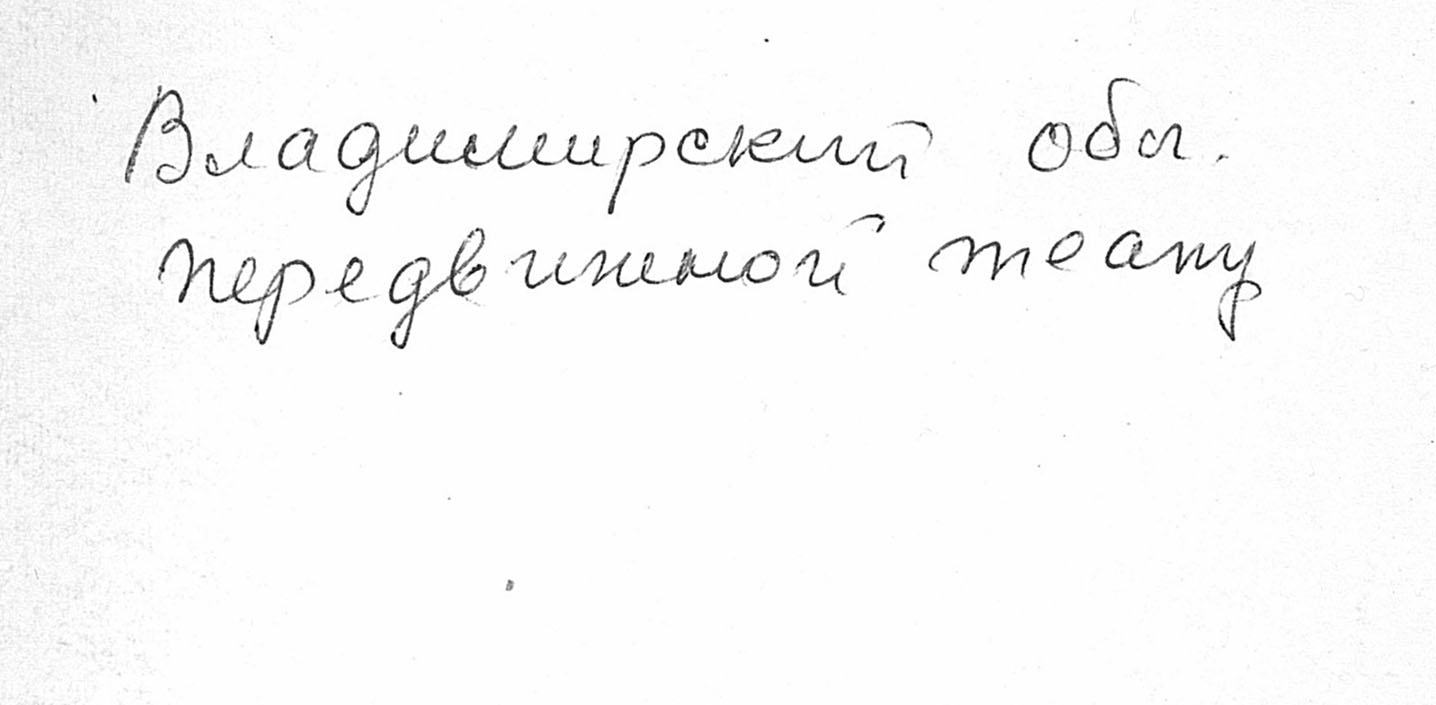 Владимирский обл.
передвижной театр